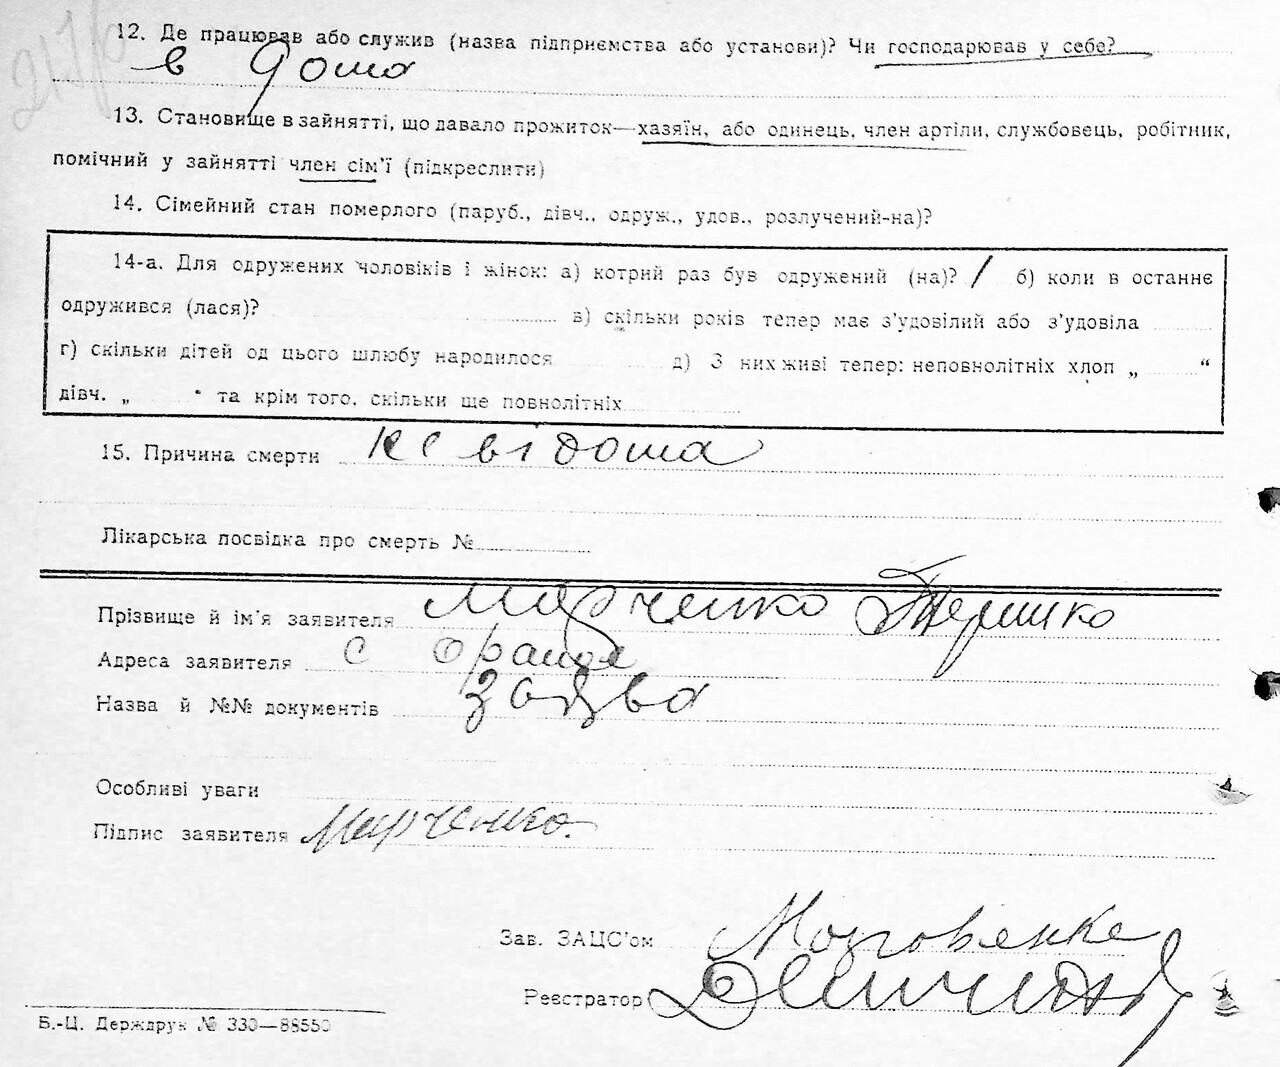 12. Де працював або служив (назва підприємства або установи)? Чи господарював у себе?
в дома
13. Становище в зайнятті, що давало прожиток—хазяїн, або одинець, член артіли, службовець, робітник,
помічний у зайнятті член сім'ї (підкреслити)
14. Сімейний стан померлого (паруб., дівч., одруж., удов., розлучений-на)?
14-а. Для одружених чоловіків і жінок: а) котрий раз був одружений (на)? / б) коли в останнє
одружився (лася)? в) скільки років тепер має з'удовілий або з'удовіла
г) скільки дітей од цього шлюбу народилося д) З них живі тепер: неповнолітніх хлоп „ “
дівч. „ “ та крім того, скільки ще повнолітніх
15. Причина смерти не відома
Лікарська посвідка про смерть №
Прізвище й ім'я заявителя Марченко Терешко
Адреса заявителя с
Назва й №№ документів заява
Особливі уваги
Підпис заявителя Марченко.
Зав. ЗАЦС'ом
Реєстратор
Б.-Ц. Держдрук № 330—88550